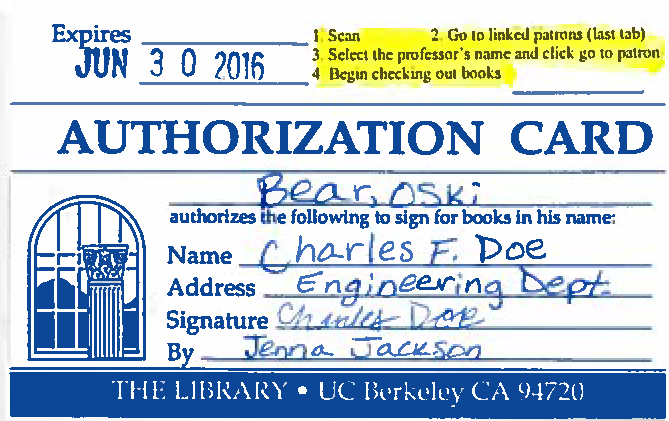 Expires
JUN 30 2016
1. Scan 2. Go to linked patrons (last tab)
3. Select the professor's name and click go to patron
4 Begin checking out books
AUTHORIZATION CARD
Bear, OSKi
authorizes the following to sign for books in his name:
Name Charles F. Doe
Address Engineering Dept.
Signature Charles Doe
By Jenna Jackson
THE LIBRARY • UC Berkeley CA 94720